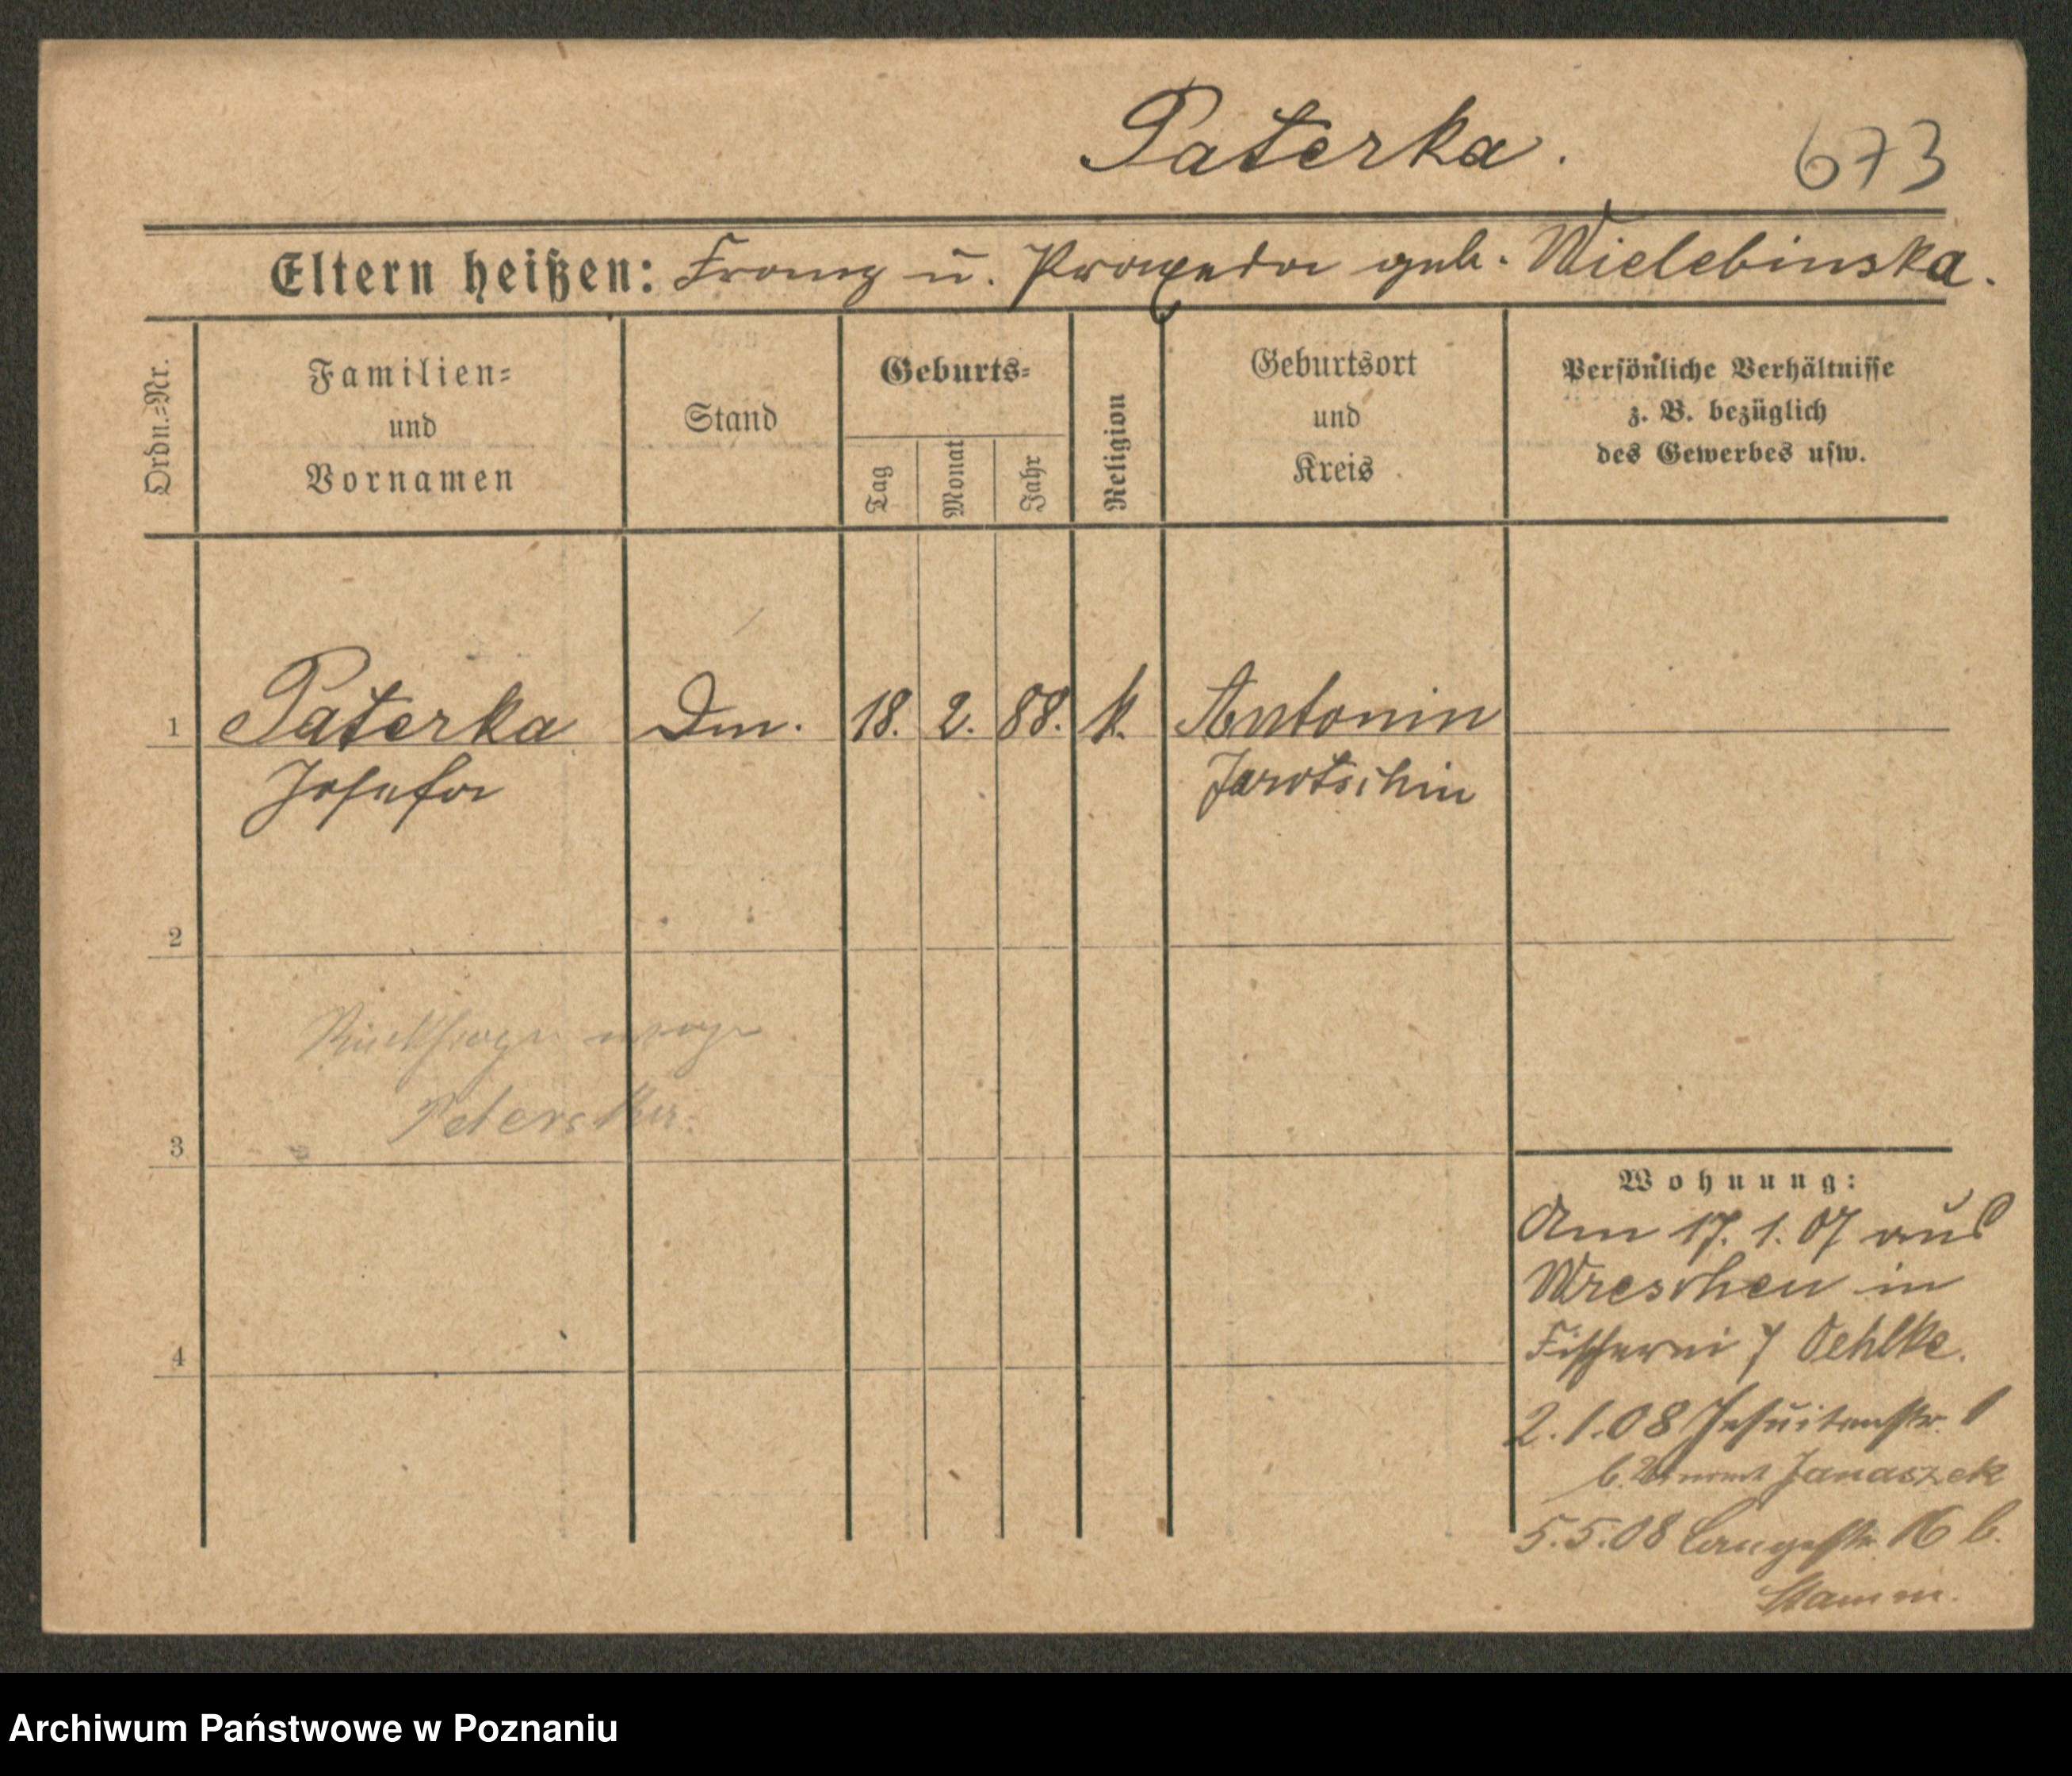 Paterka. 673
Eltern heißen: Franz u. Praxeda geb. Wielebinska.
Ordn.=Nr.
Familien=
und
Vornamen
Stand
Geburts=
Tag
Monat
Jahr
Religion
Geburtsort
und
Kreis
Persönliche Verhältnisse
z. B. bezüglich
des Gewerbes usw.
1 Paterka Dm. 18. 2. 88. k. Antonin
Josefa Jarotschin
2
Rückfrage wege
3
4
Wohnung:
Am 17. 1. 07 aus
Wreschen in
Fischerei 7 Oehlke.
2.1.08 Jesuitenstr. 1
b. Janaszek
5.5.08 Langestr. 16 b.
Stamm.
Archiwum Państwowe w Poznaniu